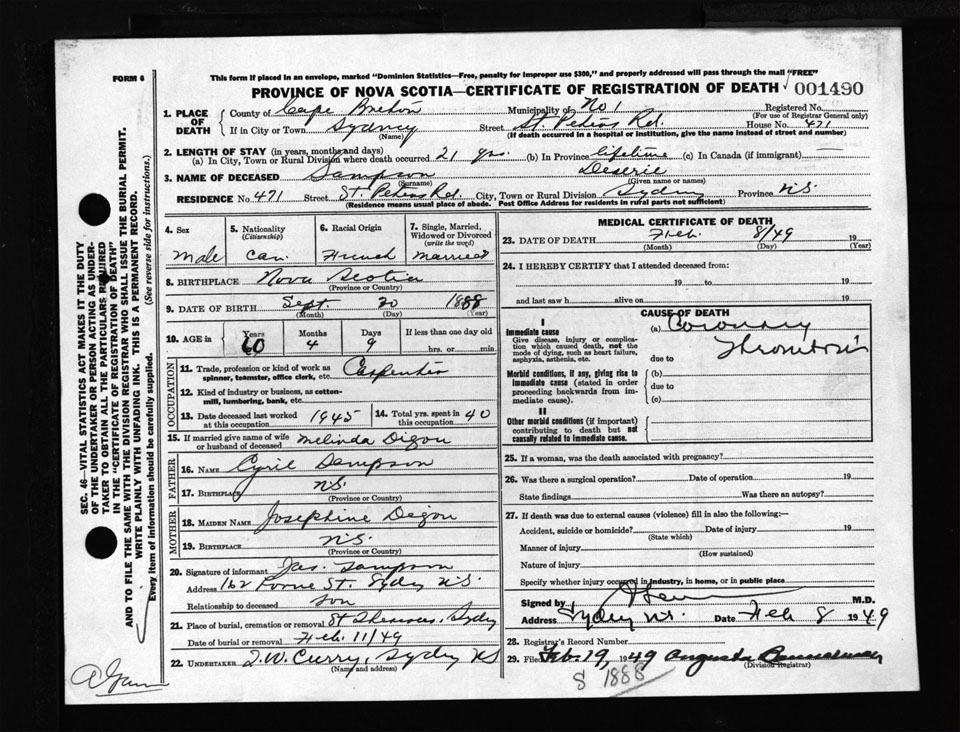 FORM 6
This form if placed in an envelope, marked "Dominion Statistics—Free, penalty for improper use $300," and properly addressed will pass through the mail "FREE"
PROVINCE OF NOVA SCOTIA—CERTIFICATE OF REGISTRATION OF DEATH 001490
1. PLACE OF DEATH County of Cape Breton Municipality of No 1 Registered No.
(For use of Registrar General only)
If in City or Town Sydney Street St Peters Rd. House No. 471
(Name) (If death occurred in a hospital or institution, give the name instead of street and number)
2. LENGTH OF STAY (in years, months and days)
(a) In City, Town or Rural Division where death occurred 21 yrs. (b) In Province lifetime (c) In Canada (if immigrant) —
3. NAME OF DECEASED Sampson Deserie
(Surname) (Given name or names)
RESIDENCE No. 471 Street St. Peters Rd. City, Town or Rural Division Sydney Province N.S.
(Residence means usual place of abode. Post Office Address for residents in rural parts not sufficient)
4. Sex
Male
5. Nationality
(Citizenship)
Can.
6. Racial Origin
French
7. Single, Married, Widowed or Divorced
(write the word)
Married
8. BIRTHPLACE Nova Scotia
(Province or Country)
9. DATE OF BIRTH Sept. 30 1888
(Month) (Day) (Year)
10. AGE in Years Months Days If less than one day old
60 4 9 hrs. or min.
OCCUPATION
11. Trade, profession or kind of work as spinner, teamster, office clerk, etc. Carpenter
12. Kind of industry or business, as cotton-mill, lumbering, bank, etc.
13. Date deceased last worked at this occupation 1945
14. Total yrs. spent in 40
15. If married give name of wife or husband of deceased Melinda Digou
FATHER
16. NAME Cyril Sampson
17. BIRTHPLACE N.S.
(Province or Country)
MOTHER
18. MAIDEN NAME Josephine Digou
19. BIRTHPLACE N.S.
(Province or Country)
20. Signature of informant Jas. Sampson
Address 162 St. Sydney N.S.
Relationship to deceased son
21. Place of burial, cremation or removal St Sydney
Date of burial or removal Feb. 11/49
22. UNDERTAKER T.W. Curry, Sydney NS
(Name and address)
MEDICAL CERTIFICATE OF DEATH
23. DATE OF DEATH Feb. 8/49 19
(Month) (Day) (Year)
24. I HEREBY CERTIFY that I attended deceased from:
19 to 19
and last saw h alive on 19
CAUSE OF DEATH
I
Immediate cause
Give disease, injury or complication which caused death, not the mode of dying, such as heart failure, asphyxia, asthenia, etc.
(a) Coronary
Thrombosis
due to
Morbid conditions, if any, giving rise to immediate cause (stated in order proceeding backwards from immediate cause).
(b)
due to
(c)
II
Other morbid conditions (if important) contributing to death but not causally related to immediate cause.
25. If a woman, was the death associated with pregnancy?
26. Was there a surgical operation? Date of operation 19
State findings Was there an autopsy?
27. If death was due to external causes (violence) fill in also the following:—
Accident, suicide or homicide? Date of injury 19
(State which)
Manner of injury
(How sustained)
Nature of injury
Specify whether injury occurred in industry, in home, or in public place
Signed by M.D.
Address Sydney N.S. Date Feb 8 1949
28. Registrar's Record Number
29. Filed Feb. 19, 1949 Augusta Bannerman
(Division Registrar)
S 1888
SEC. 46—VITAL STATISTICS ACT MAKES IT THE DUTY
OF THE UNDERTAKER OR PERSON ACTING AS UNDER-
TAKER TO OBTAIN ALL THE PARTICULARS REQUIRED
IN THE "CERTIFICATE OF REGISTRATION OF DEATH"
AND TO FILE THE SAME WITH THE DIVISION REGISTRAR WHO SHALL ISSUE THE BURIAL PERMIT.
WRITE PLAINLY WITH UNFADING INK. THIS IS A PERMANENT RECORD.
Every item of information should be carefully supplied. (See reverse side for instructions.)